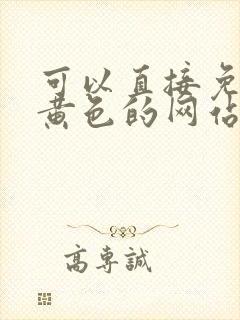 可以直接免
黄色的网佔
高專誠